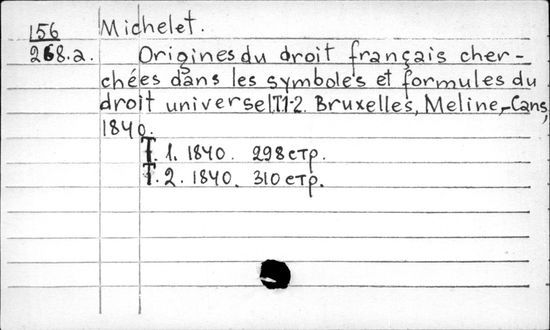 156 Michelet.
268.a. Origines du droit français cher-
chées dans les symboles et formules du
droit universel T.1-2. Bruxelles, Meline, Cans,
1840.
Т. 1. 1840. 298 стр.
Т. 2. 1840. 310 стр.